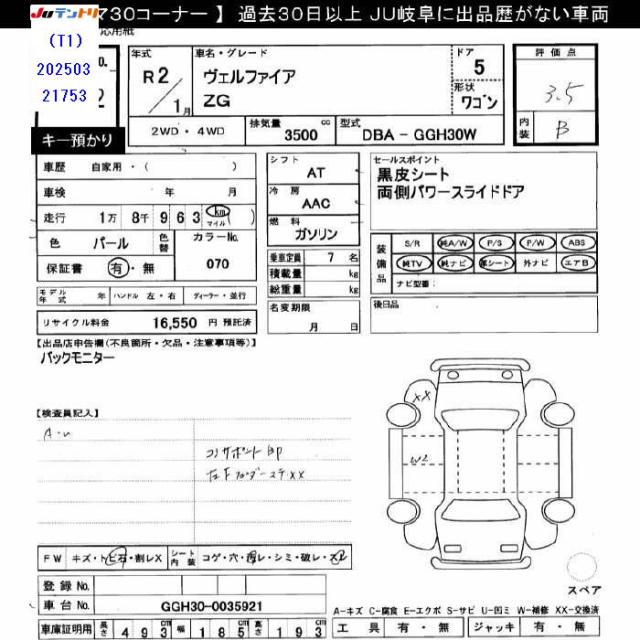 JUテントリ マ30コーナー 】 過去30日以上 JU岐阜に出品歴がない車両
(T1)
202503
21753
応用紙
No.
2
キー預かり
年式
R2/1月
車名・グレード
ヴェルファイア
ZG
ドア
5
形状
ワゴン
評価点
3.5
内装
B
2WD・4WD
排気量
3500 cc
型式
DBA - GGH30W
車歴 自家用・( )
車検 年 月
走行 1万 8千 963 km マイル
色 パール
色替
カラーNo.
070
保証書 有・無
モデル年式 年 ハンドル 左・右 ディーラー・並行
リサイクル料金 16,550 円 預託済
シフト
AT
冷房
AAC
燃料
ガソリン
乗車定員 7 名
積載量 kg
総重量 kg
名変期限
月 日
セールスポイント
黒皮シート
両側パワースライドドア
装備品
S/R 純A/W P/S P/W ABS
純TV 純ナビ 革シート 外ナビ エアB
ナビ型番:
後日品
【出品店申告欄(不良箇所・欠品・注意事項等)】
バックモニター
【検査員記入】
A-U
コアサポート
左Fフェンダーステ XX
XX
W2
FW キズ・トビ石・割レX
シート内装 コゲ・穴・スレ・シミ・破レ・
登録No.
車台No. GGH30-0035921
車庫証明用 長さ 493 cm 幅 185 cm 高さ 193 cm
スペア
A-キズ C-腐食 E-エクボ S-サビ U-凹ミ W-補修 XX-交換済
工具 有・無 ジャッキ 有・無